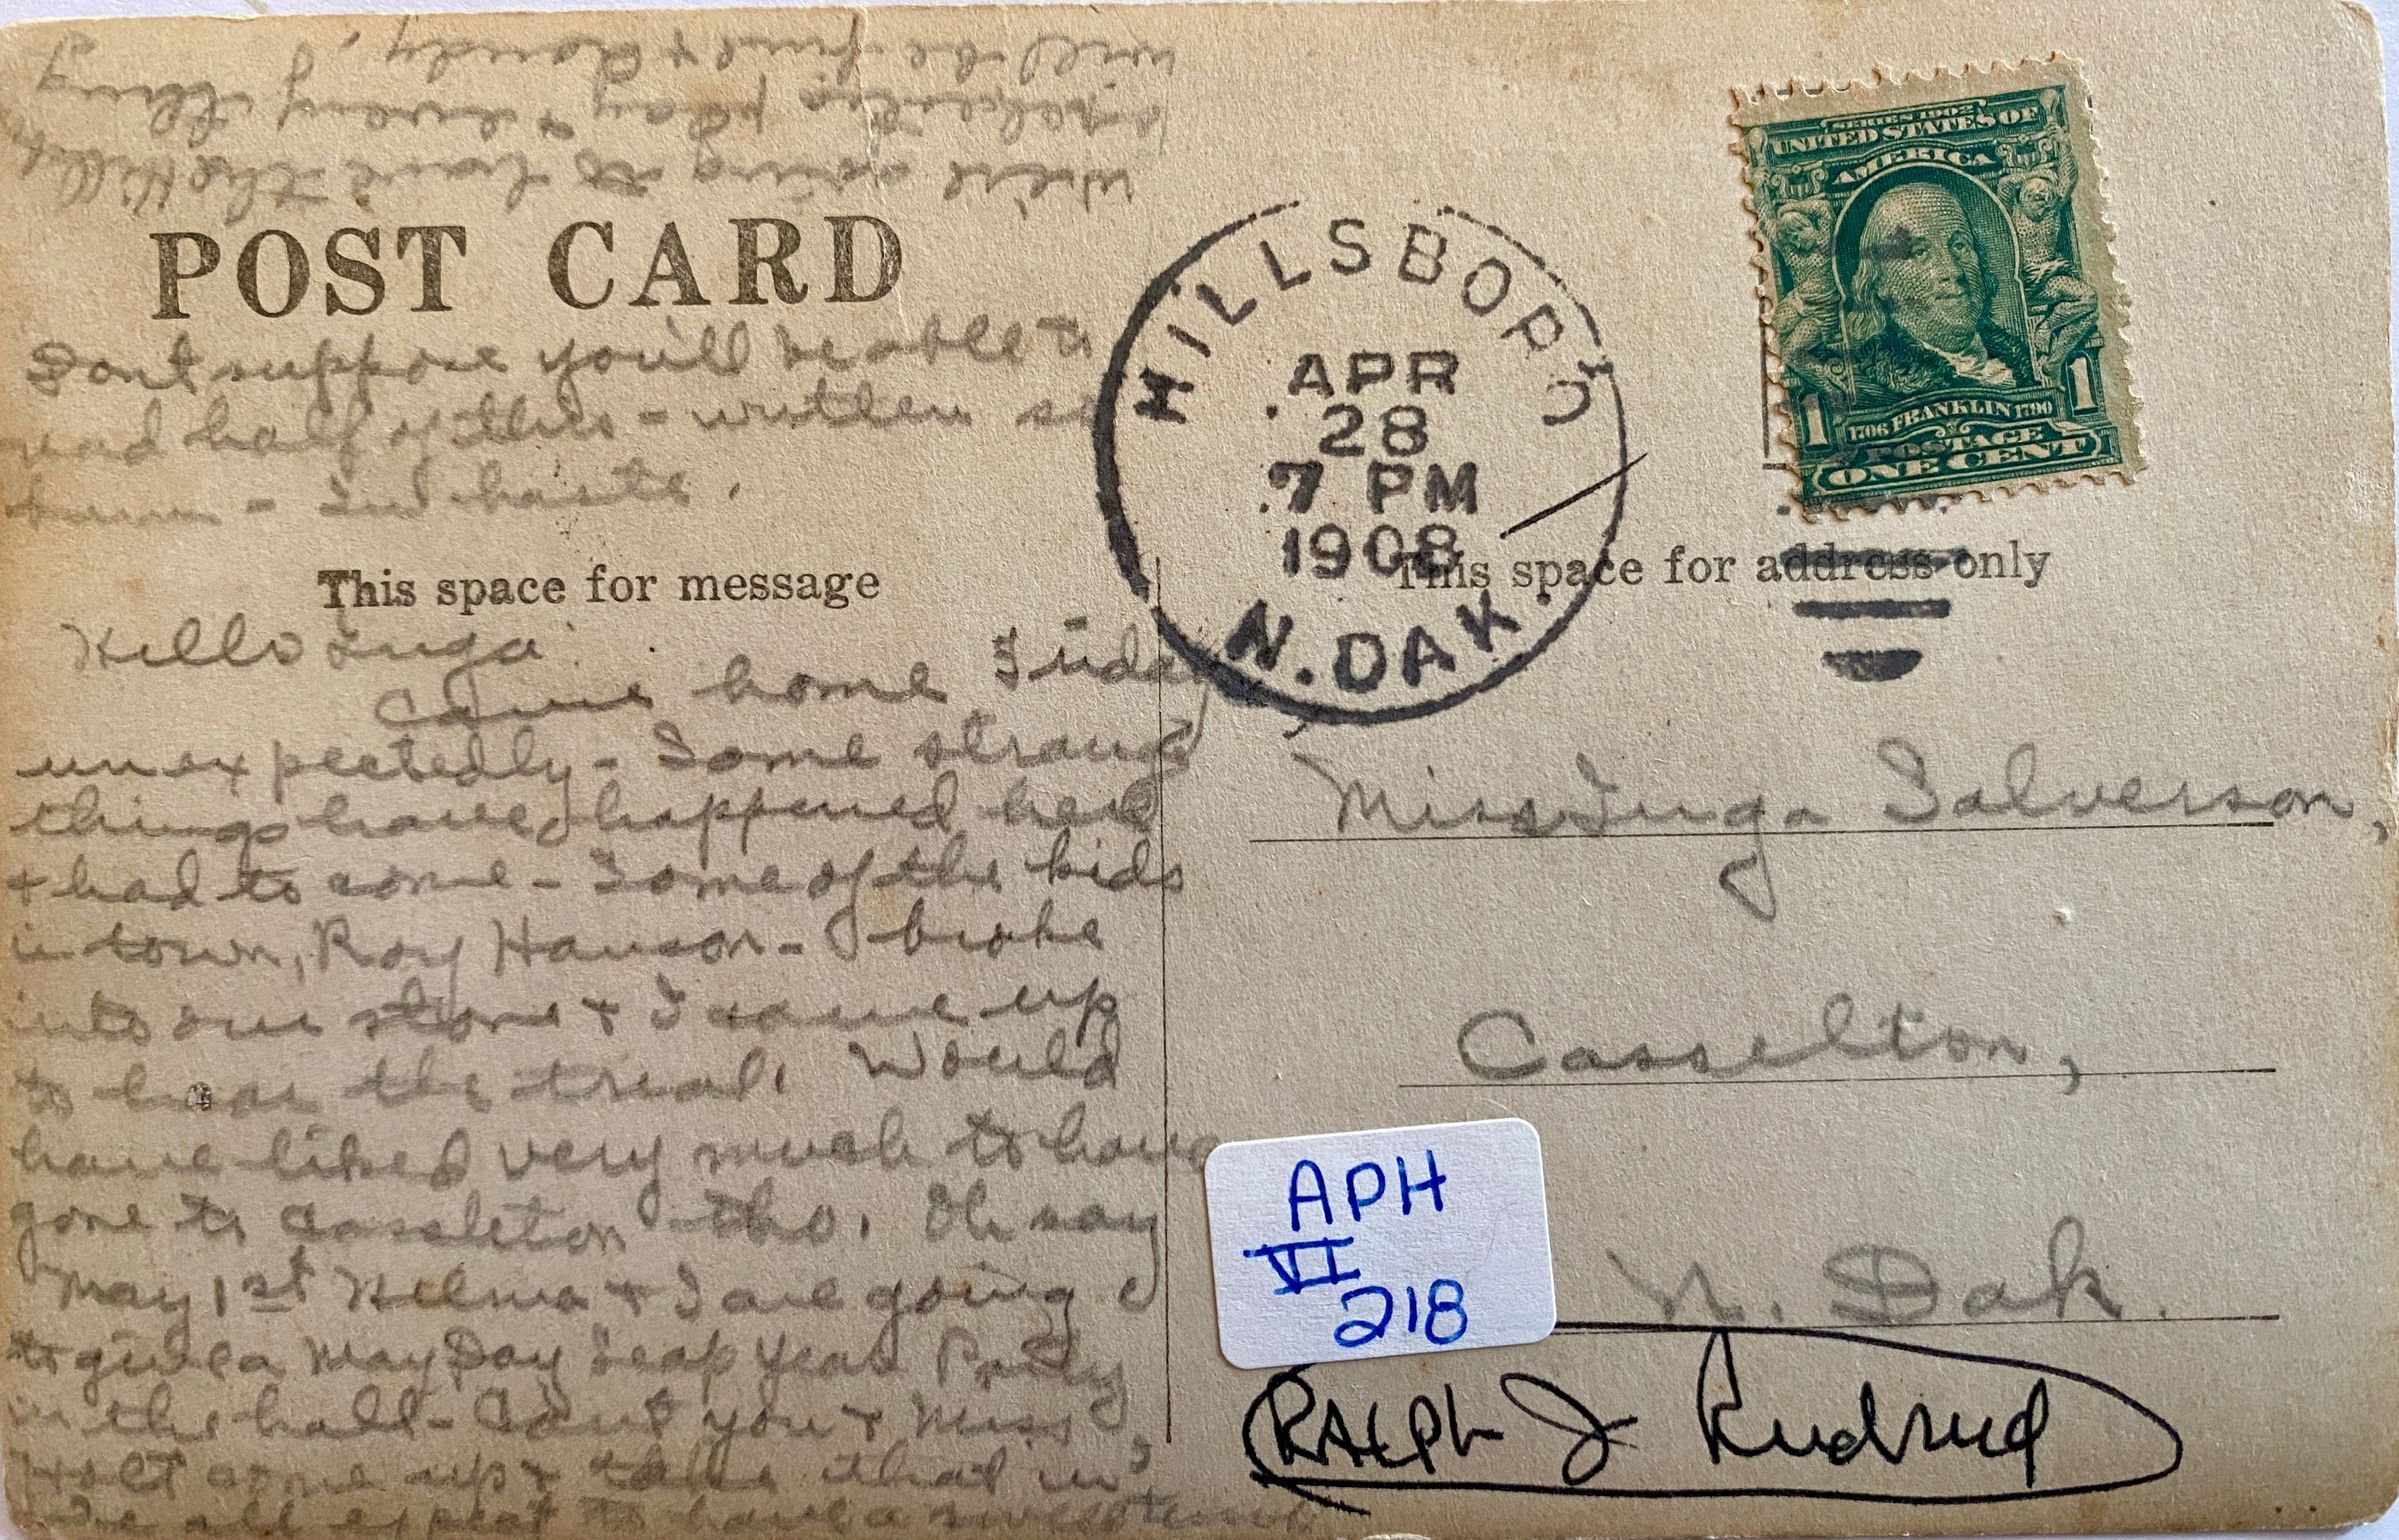 POST CARD
This space for message
Hello Inga:
Came home Friday
unexpectedly - Some strange
things have happened here
+ had to come - Some of the kids
in town, Roy Hanson - broke
into our store + I came up
to hear the trial. Would
have liked very much to have
gone to Casselton tho. Oh say
May 1st Hilma + I are going
to give a May Day Leap Year Party
in the hall - Can't you + Miss
Holt come up + take that in,
We all expect to have a swell time
We're going to have the Hillsboro
orchestra play + every thing
will be fine + dandy.
Dont suppose you'll be able to
read half of this - written so
- In haste.
HILLSBORO
APR
28
7 PM
1908
N. DAK.
SERIES 1902
UNITED STATES OF
AMERICA
1706 FRANKLIN 1790
POSTAGE
1 1
ONE CENT
This space for address only
Miss Inga Salverson,
Casselton,
N. Dak.
APH
VI
218
RALPH J Rudrud